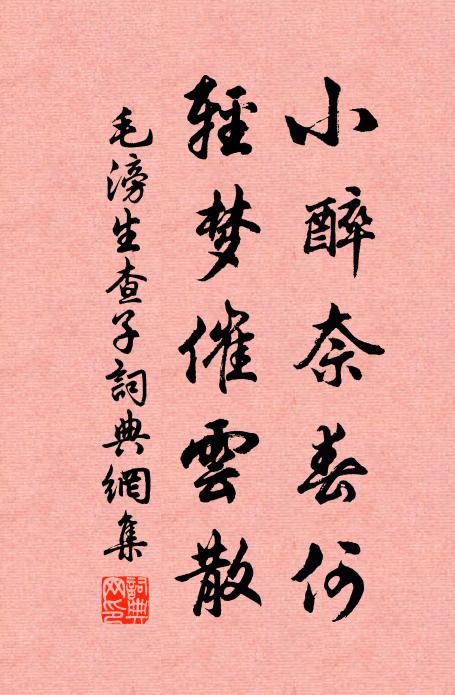 小醉奈春何
輕梦催雲散
毛滂生查子詞典網集
詞典网印